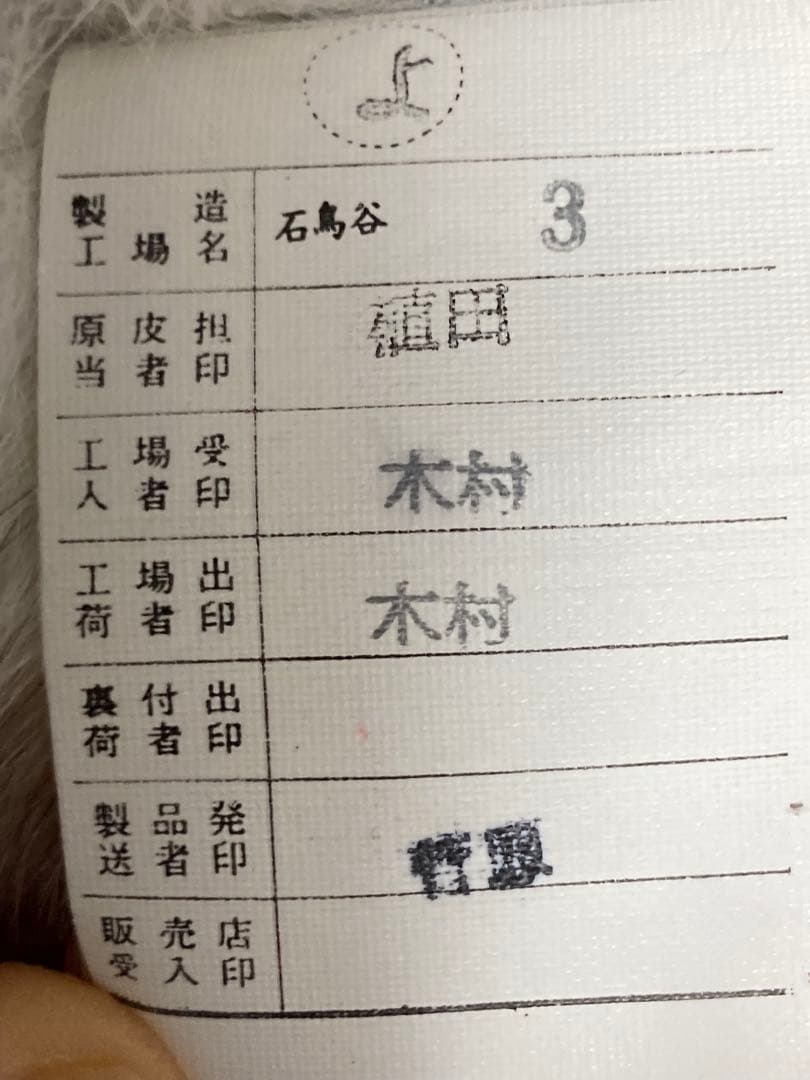 上
製造 石鳥谷 3
工場名
原皮担 植田
当者印
工場受 木村
入者印
工場出 木村
荷者印
裏付出
荷者印
製品発
送者印
販売店
受入印